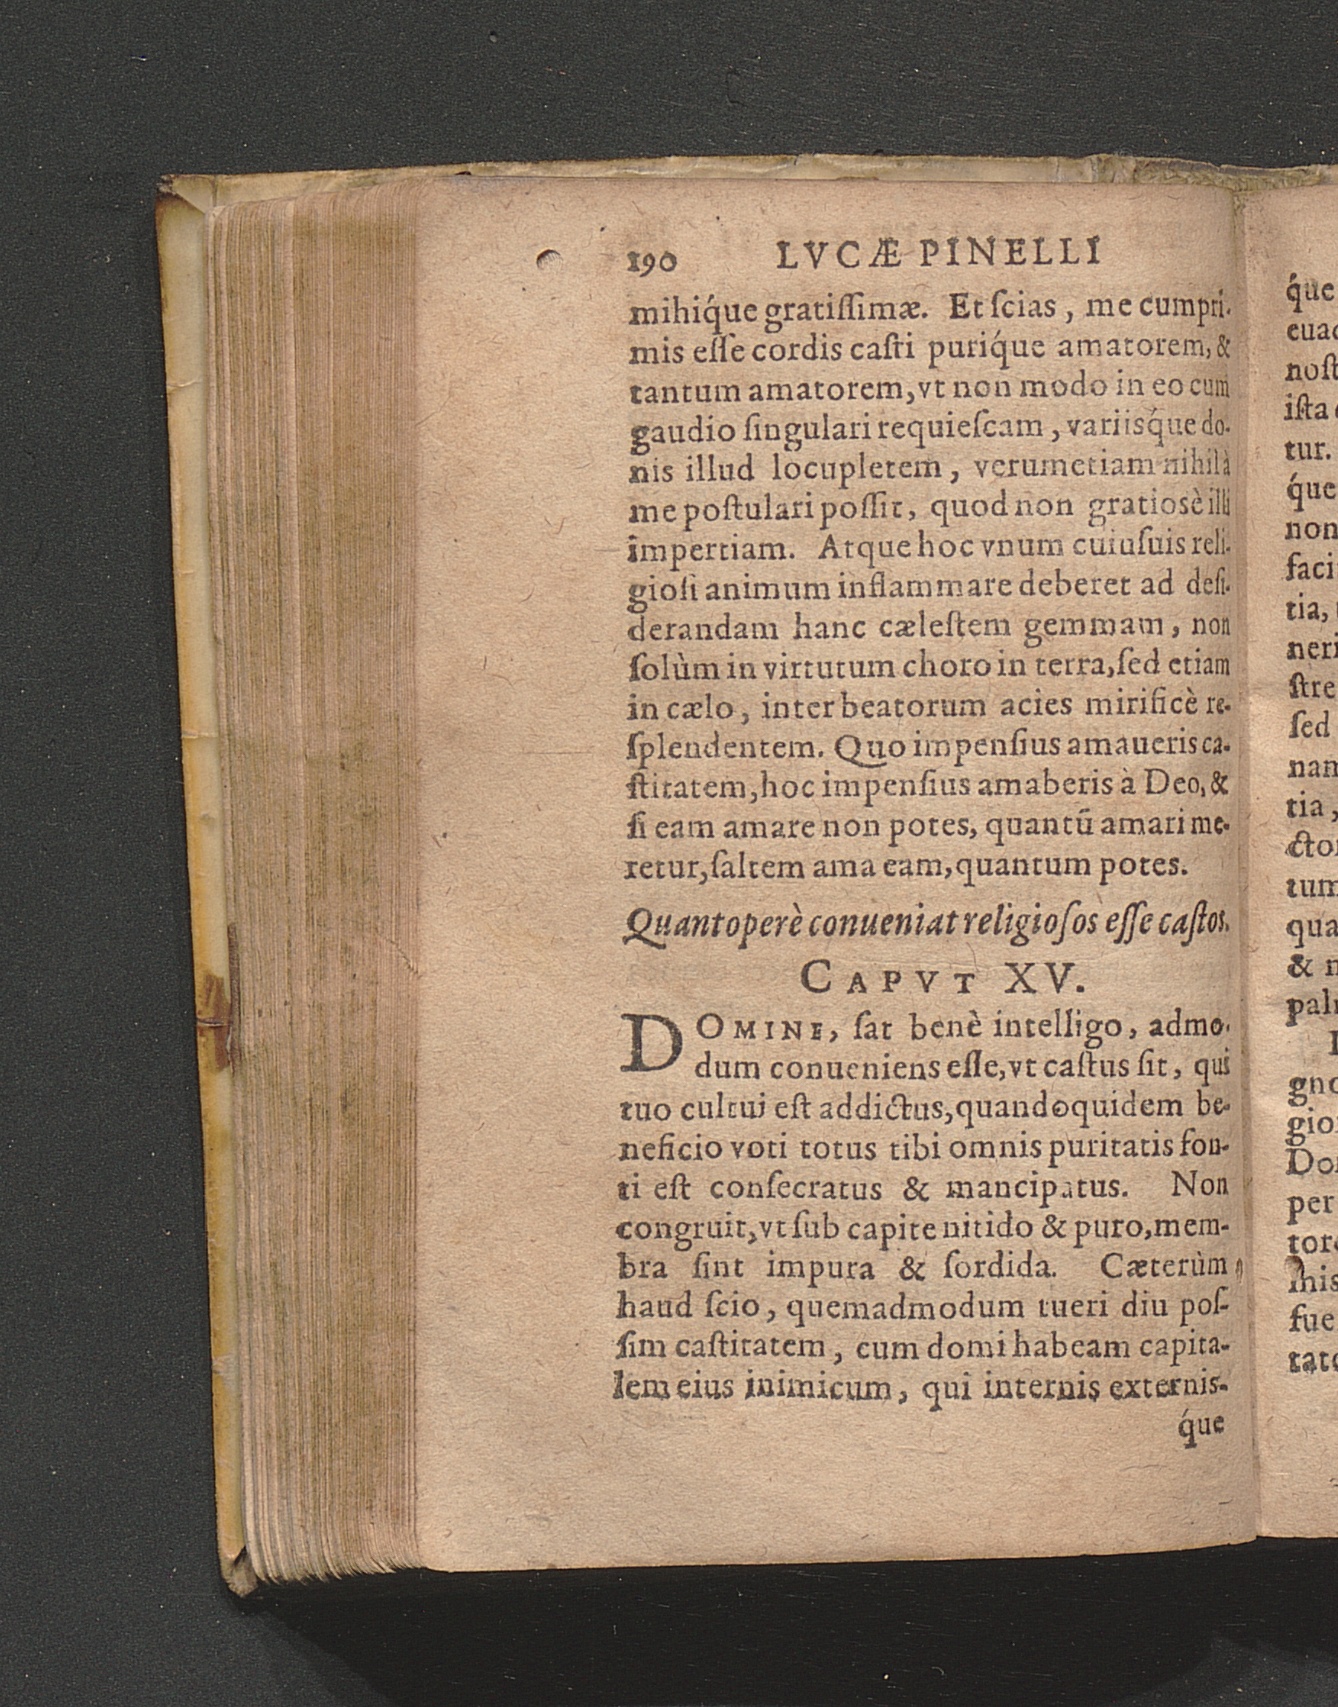 190 LVCÆ PINELLI
mihiq́ue gratiſſimæ. Et ſcias, me cumpri-
mis eſſe cordis caſti puriq́ue amatorem, &
tantum amatorem, vt non modo in eo cum
gaudio ſingulari requieſcam, variisq́ue do-
nis illud locupletem, verumetiam nihil à
me poſtulari poſſit, quod non gratiosè illi
impertiam. Atque hoc vnum cuiuſuis reli-
gioſi animum inflammare deberet ad deſi-
derandam hanc cæleſtem gemmam, non
ſolùm in virtutum choro in terra, ſed etiam
in cælo, inter beatorum acies mirificè re-
ſplendentem. Quo impenſius amaueris ca-
ſtitatem, hoc impenſius amaberis à Deo, &
ſi eam amare non potes, quantũ amari me-
retur, ſaltem ama eam, quantum potes.
Quantoperè conueniat religioſos eſſe caſtos.
CAPVT XV.
DOMINE, ſat benè intelligo, admo-
dum conueniens eſſe, vt caſtus ſit, qui
tuo cultui eſt addictus, quandoquidem be-
neficio voti totus tibi omnis puritatis fon-
ti eſt conſecratus & mancipatus. Non
congruit, vt ſub capite nitido & puro, mem-
bra ſint impura & ſordida. Cæterùm
haud ſcio, quemadmodum tueri diu poſ-
ſim caſtitatem, cum domi habeam capita-
lem eius inimicum, qui internis externis-
q́ue
q́ue
noſt
iſta
tur.
q́ue
non
faci
tia,
ſtre
ſed
nam
tia,
ctor
tum
qua
& n
gio
per
fue